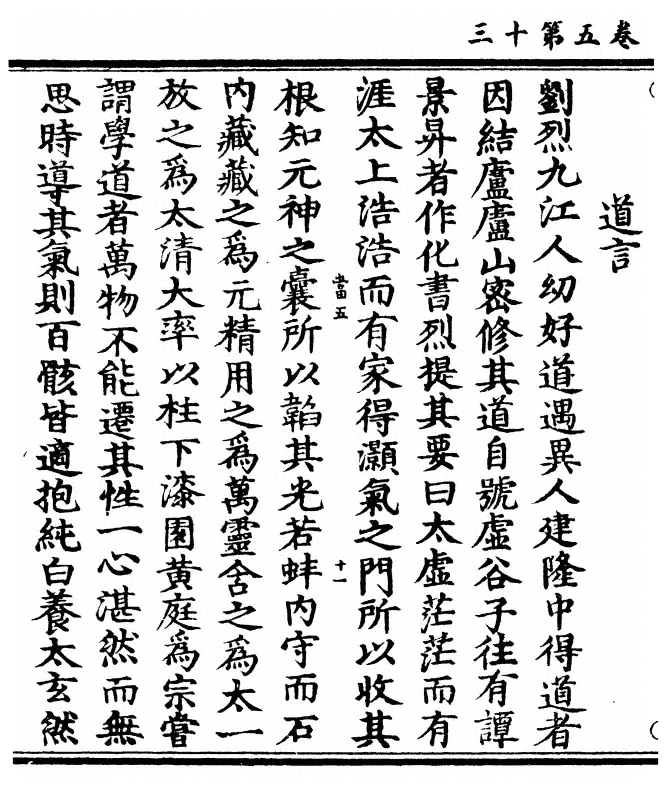 三十第五卷
道言
劉烈九江人幼好道遇異人建隆中得道者
因結廬廬山密修其道自號虛谷子往有譚
景昇者作化書烈提其要曰太虛茫茫而有
涯太上浩浩而有家得灝氣之門所以收其
當五
十一
根知元神之囊所以韜其光若蚌內守而石
內藏藏之為元精用之為萬靈含之為太一
放之為太清大率以柱下漆園黃庭為宗嘗
謂學道者萬物不能遷其性一心湛然而無
思時導其氣則百骸皆適抱純白養太玄然